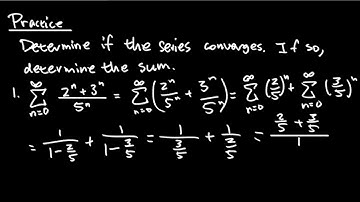 Practice
Determine if the series converges. If so,
determine the sum.
1. ∑_{n=0}^{∞} (2^n + 3^n)/5^n = ∑_{n=0}^{∞} (2^n/5^n + 3^n/5^n) = ∑_{n=0}^{∞} (2/5)^n + ∑_{n=0}^{∞} (3/5)^n
= 1/(1 - 2/5) + 1/(1 - 3/5) = 1/(3/5) + 1/(2/5) = (2/5 + 3/5)/1